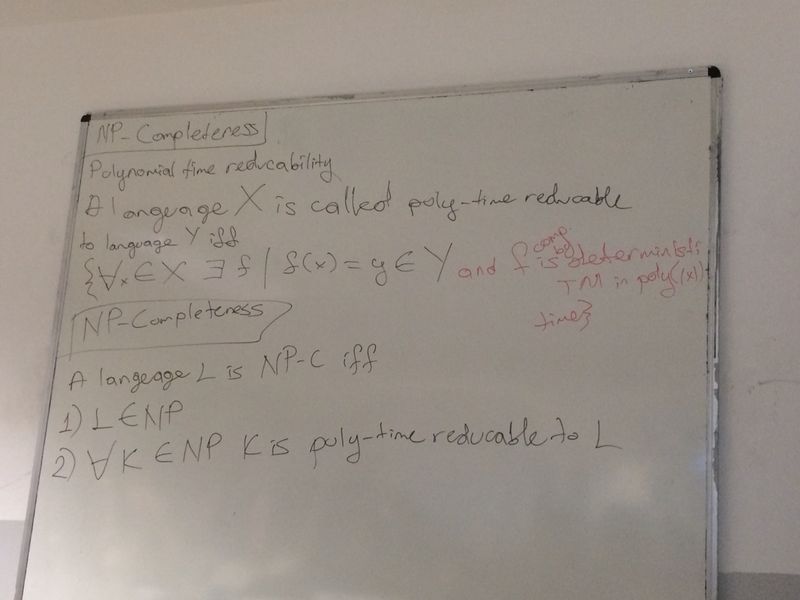 NP-Completeness
Polynomial time reducability
A language X is called poly-time reducable
to language Y iff
{∀x∈X ∃f | f(x) = y ∈ Y and f is comp. by deterministi
TM in poly(|x|)
time}
NP-Completeness
A langeage L is NP-C iff
1) L∈NP
2) ∀K∈NP K is poly-time reducable to L